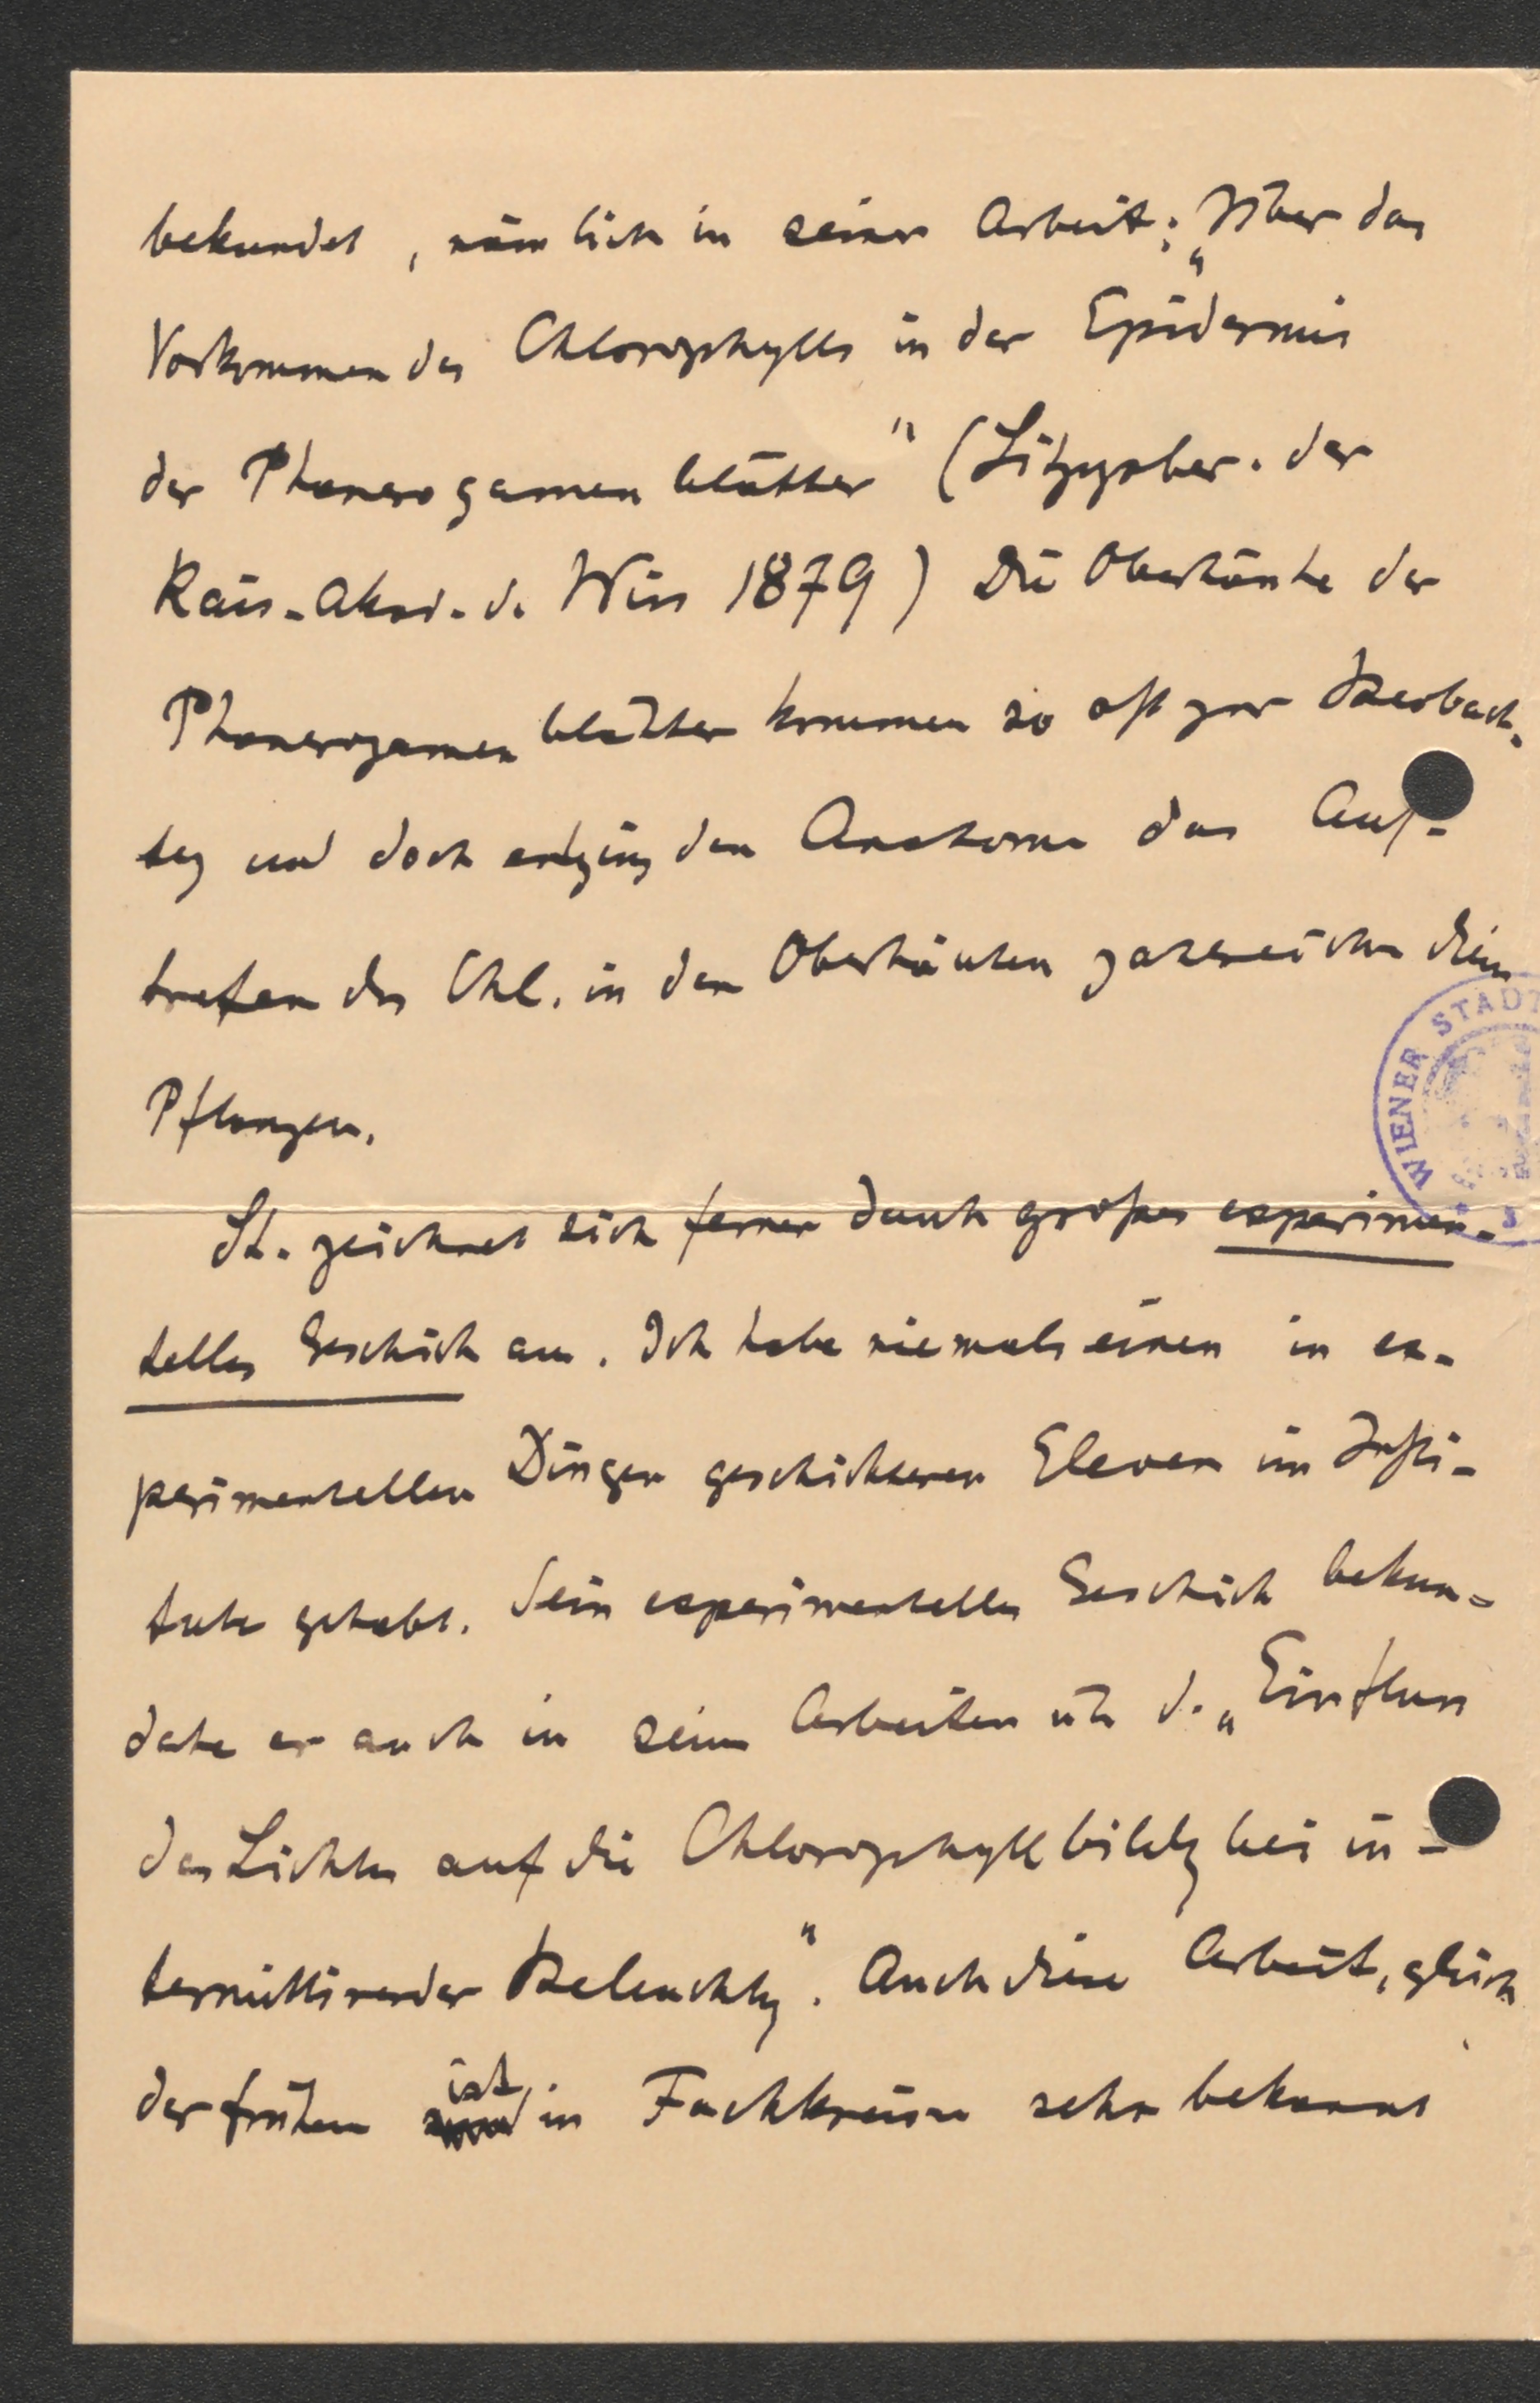 bekundet, nämlich in seiner Arbeit: „Über das
Vorkommen des Chlorophylls in der Epidermis
der Phanerogamenblätter" (Sitzgsber. der
Kais. Akad. d. Wiss 1879) Die Oberhäute der
Phanerogamenblätter kommen so oft zur Beobach-
tg und doch entging den Anatomen das Auf-
treten des Chl. in den Oberhäuten zahlreicher
Pflanzen.
St. zeichnet sich ferner durch großes experimen-
telles Geschick aus. Ich habe niemals einen in ex-
perimentellen Dingen geschickteren Eleven im Insti-
tute gehabt. Sein experimentelles Geschick bekun-
dete er auch in seinen Arbeiten üb d. „Einfluss
des Lichtes auf die Chlorophyllbildg bei in-
termittirender Beleuchtg". Auch diese Arbeit, gleich
der frühern ist in Fachkreisen sehr bekannt
WIENER STADT